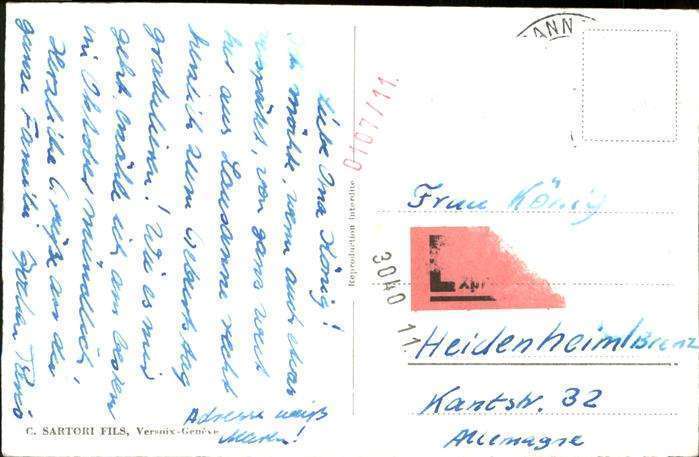 Liebe Oma König!
Ich möchte, wenn auch etwas
verspätet, von ganz weit
her aus Lausanne recht
herzlich zum Geburtstag
gratulieren! Wie es mir
geht erzähle ich am besten
im Oktober mündlich!
Herzliche Grüße an die
ganze Familie
Adresse weiß
C. SARTORI FILS, Versoix-Genève
Reproduction interdite
0107/11.
3040 11
ANN
Frau König
Heidenheim/Brenz
Kantstr. 32
Allemagne